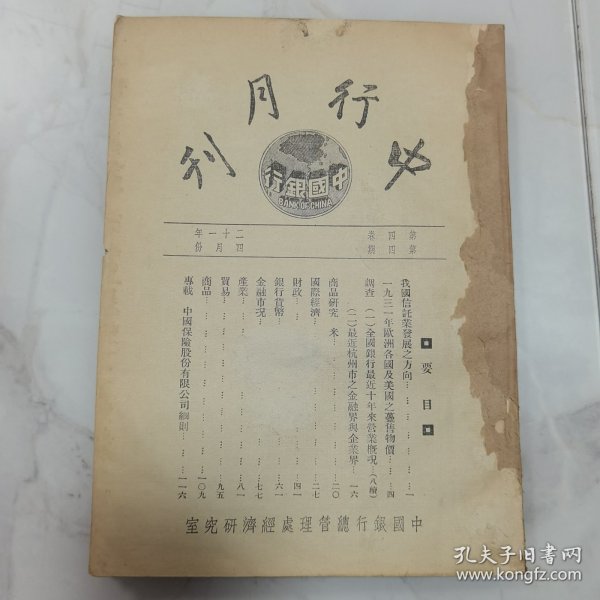 中行月刊
中國銀行
BANK OF CHINA
第四卷
第四期
二十一年
四月份
要目
我國信託業發展之方向……………一
一九三一年歐洲各國及美國之躉售物價……四
調查 (一)全國銀行最近十年來營業概況…(八續)
(二)最近杭州市之金融界與企業界…一六
商品研究 米……………二〇
國際經濟……………二七
財政……………四一
銀行貨幣……………六一
金融市况……………七七
產業……………八一
貿易……………九五
商品……………一〇九
專載 中國保險股份有限公司細則……一一六
中國銀行總管理處經濟研究室
孔夫子旧书网
www.kongfz.com